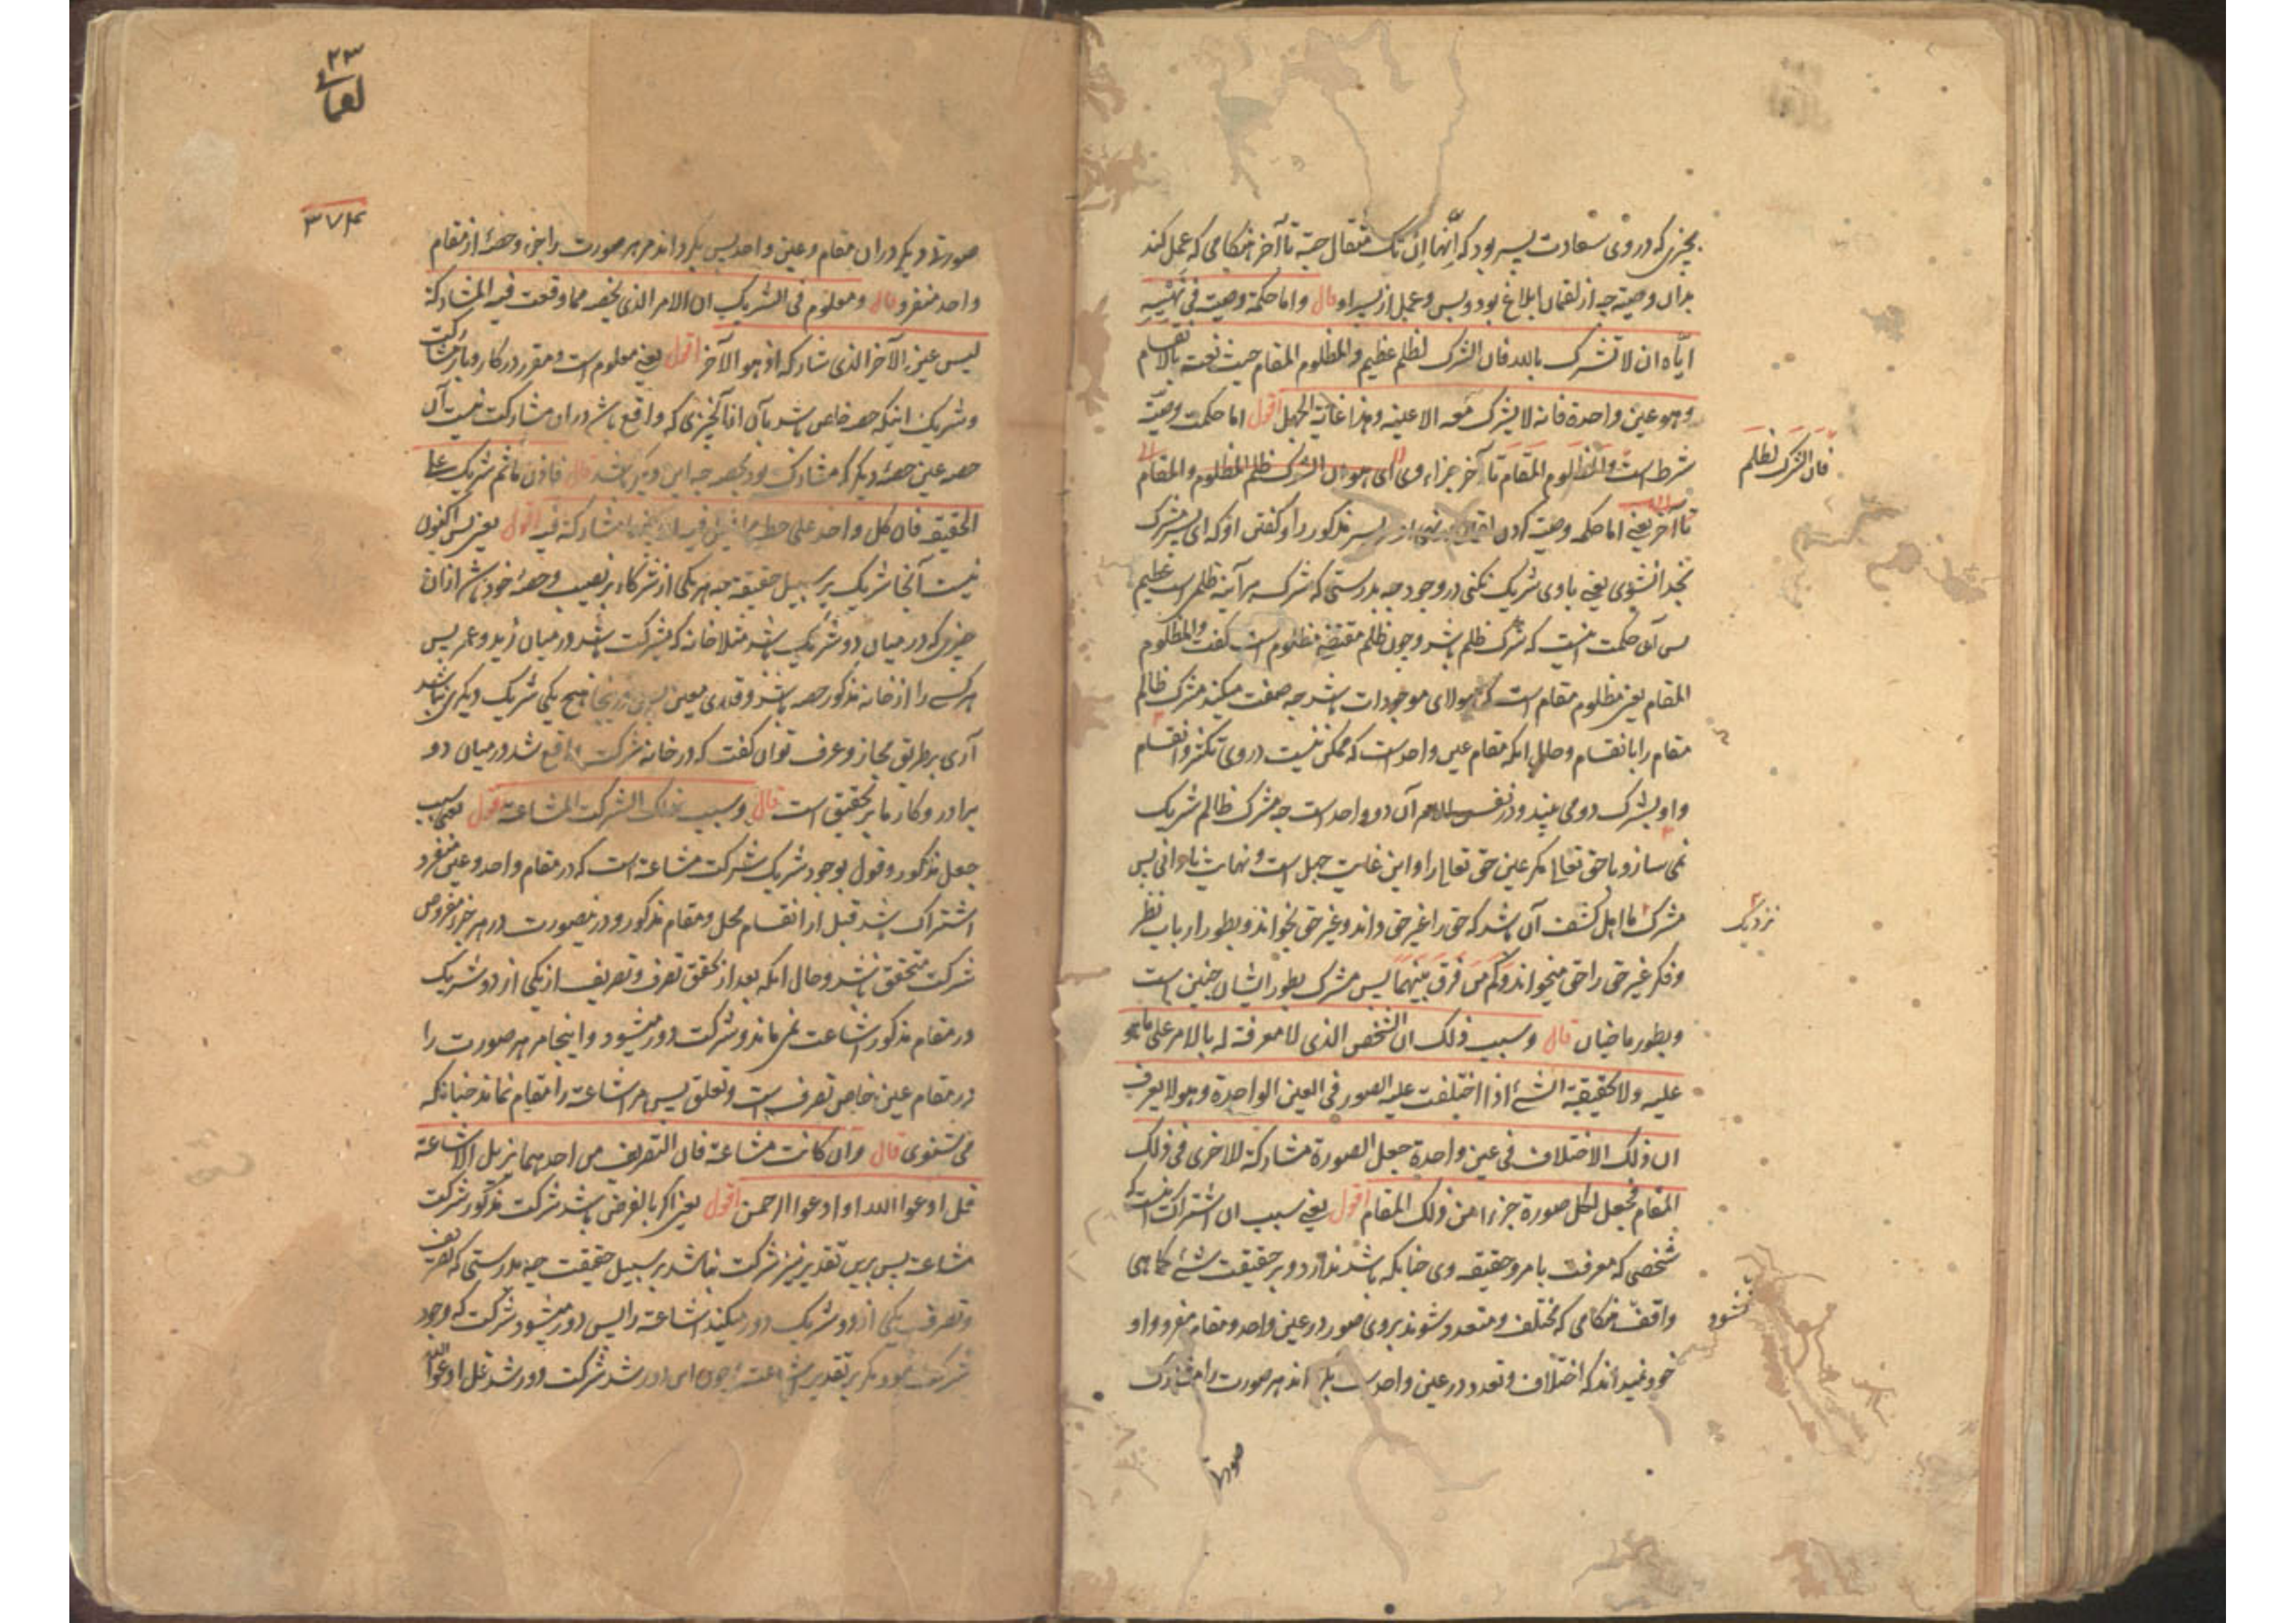 بچیزی که در وی سعادت پسر بود که انها ان تک مثقال حبة تا آخر هنگامی که عمل کند
بدان وصیة چه از لقمان ابلاغ بود و بس و عمل از پسر او قال واما حکمة وصیته فی نهیه
ایاه ان لا تشرک بالله فان الشرک لظلم عظیم والمظلوم المقام حیث نعته بالانقسام
وهو عین واحدة فانه لا یشرک معه الا عینه وهذا غایة الجهل اقول اما حکمت وصیت
شرط است والمظلوم المقام تا آخر جزاء وی ای هو ان الشرک ظلم المظلوم والمقام
فان الشرک لظلم
تا آخر یعنی اما حکمه وصیت کردن لقمان پسر مذکور را و گفتن او که ای پسر مشرک
بخدا نشوی یعنی با وی شریک نکنی در وجود چه بدرستی که شرک هر آینه ظلمی است عظیم
پس آن حکمت اینست که شرک ظلم باشد و چون ظلم مقتضی مظلوم است گفت والمظلوم
المقام یعنی مظلوم مقام است که هیولای موجودات باشد چه صفت میکند مشرک ظالم
مقام را بانقسام و حال آنکه مقام عین واحد است که ممکن نیست در وی تکثر و انقسام
و او بشرک دو می بیند و در نفس الامر آن دو واحد است چه مشرک ظالم شریک
نمی سازد با حق تعالی مگر عین حق تعالی را و این غایت جهل است و نهایت نادانی پس
مشرک ما اهل کشف آن باشد که حق را غیر حق داند و غیر حق بخواند و بطور ارباب نظر
نزدیک
و فکر غیر حق را حق میخواند و کم من فرق بینهما پس مشرک بطور ایشان چنین است
و بطور ما چنان قال وسبب ذلک ان الشخص الذی لا معرفة له بالامر علی ما هو
علیه ولا بحقیقة الشئ اذا اختلفت علیه الصور فی العین الواحدة وهو لا یعرف
ان ذلک الاختلاف فی عین واحدة جعل الصورة مشارکة للاخری فی ذلک
المقام فجعل لکل صورة جزءا من ذلک المقام اقول یعنی سبب آن اشتراک اینست که
شخصی که معرفت بامر و حقیقه وی چنانکه باشد ندارد و بر حقیقت شئ کما هی
واقف هنگامی که مختلف و متعدد شوند بر وی صور در عین واحد و مقام منفرد و او
نشود
خود نمیداند که اختلاف و تعدد در عین واحد است بلکه داند هر صورت را مشارک
صورتا
۲۳
لقمانی
۳۷۴
صورتا دیگر در آن مقام و عین واحد پس بگرداند مر هر صورت را جزء و حصه از مقام
واحد منفرد قال ومعلوم فی الشریک ان الامر الذی یخصه مما وقعت فیه المشارکة
لیس عین الآخر الذی شارکه اذ هو الآخر اقول یعنی معلوم است و مقرر در کار و بار مشارکت
و شریک اینکه حصه خاص باشد بآن از آنچیزی که واقع باشد در آن مشارکت نیست آن
حصه عین حصه دیگر که مشارک بود بحصه چه این دیگر باشد قال فاذن ما ثم شریک علی
الحقیقه فان کل واحد علی حظه مما قیل فیه ان بینهما مشارکة فیه اقول یعنی پس اکنون
نیست آنجا شریک بر سبیل حقیقة چه هر یکی از شرکاء بر نصیب و حصه خود باشد از آن
چیزی که در میان دو شریک باشد مثلا خانه که مشترکت باشد در میان زید و عمر پس
هر کسی را از خانه مذکور حصه باشد و قدری معین پس در اینجا هیچ یکی شریک دیگری نباشد
آری بر طریق مجاز و عرف توان گفت که در خانه شرکت واقع شد در میان دو
برادر و کار ما بر تحقیق است قال وسبب ذلک الشرکت المشاعة اقول یعنی سبب
جعل مذکور و قول بوجود شریک شرکت مشاعة است که در مقام واحد و عین منفرد
اشتراک باشد قبل از انقسام محل و مقام مذکور و در نیصورت در هر جزء مفروض
شرکت متحقق باشد و حال آنکه بعد از تحقق تصرف و تصریف از یکی از دو شریک
در مقام مذکور اشاعت نمی ماند و شرکت دور میشود و اینجا مر هر صورت را
در مقام عین خاص تصرف است و تعلق پس مر اشاعة را مقام نماند چنانکه
می شنوی قال وان کانت مشاعة فان التصریف من احدهما یزیل الاشاعة
قل ادعوا الله او ادعوا الرحمن اقول یعنی اگر بالفرض باشد شرکت مذکور شرکت
مشاعة پس برین تقدیر نیز شرکت نباشد بر سبیل حقیقت چه بدرستی که تصریف
و تصرف یکی از دو شریک دور میکند اشاعة را پس دور میشود شرکت که وجود
شرکت نبود مگر بر تقدیر اشاعت و چون این دور شد شرکت دور شد قل ادعوا الله